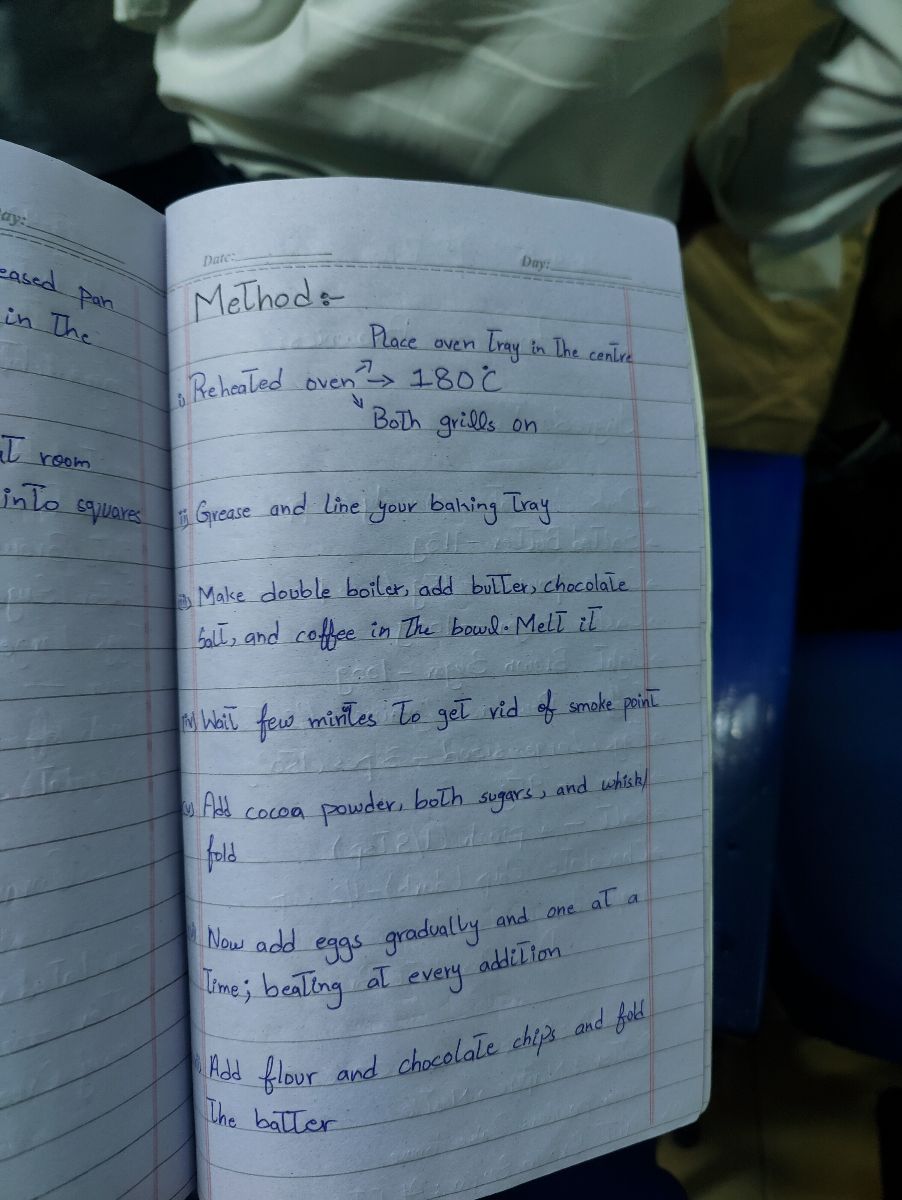 ay:
eased pan
in the
at room
into squares
Date:
Day:
Method:-
Place oven tray in the centre
i) Reheated oven → 180°C
Both grills on
ii) Grease and line your baking tray
iii) Make double boiler, add butter, chocolate
salt, and coffee in the bowl. Melt it
iv) Wait few minites to get rid of smoke point
v) Add cocoa powder, both sugars, and whisk/
fold
Now add eggs gradually and one at a
time; beating at every addition
Add flour and chocolate chips and fold
the batter